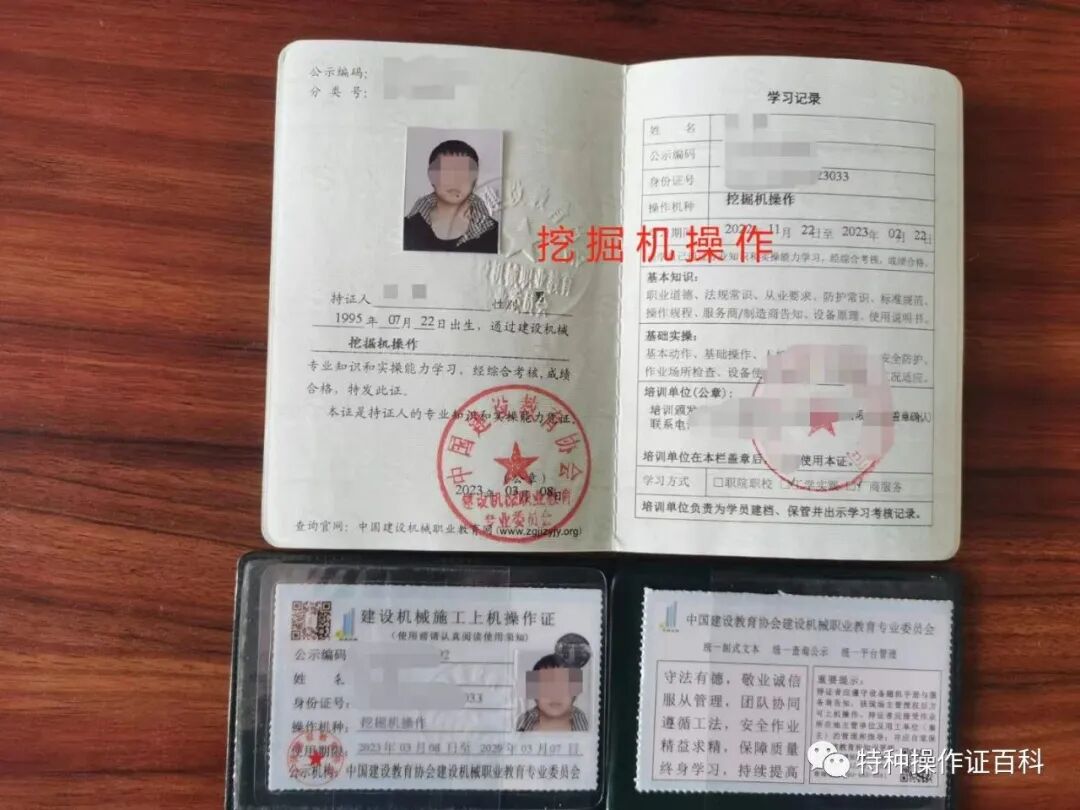 公示编码:
分 类 号:
持证人
性别 男
1995年 07月 22日出生,通过建设机械
挖掘机操作
专业知识和实操能力学习,经综合考核,成绩
合格,特发此证。
本证是持证人的专业知识和实操能力凭证.
中国建设教育协会
2023年 03月 08日
建设机械职业教育
专业委员会
查询官网:中国建设机械职业教育网(www.zgjjzyjy.org)
学习记录
姓 名
公示编码
身份证号
23033
操作机种
挖掘机操作
期限
2022 11月 22日至 2023年 02月 22日
知识和实操能力学习,经综合考核,成绩合格。
基本知识:
职业道德、法规常识、从业要求、防护常识、标准规范、
操作规程、服务商/制造商告知、设备原理、使用说明书。
基础实操:
基本动作、基础操作、
安全防护、
作业场所检查、设备使
情况适应。
培训单位(公章):
培训颁发
盖章确认)
联系电
培训单位在本栏盖章后
使用本证。
学习方式 □职院职校 □工学实践 □厂商服务
培训单位负责为学员建档、保管并出示学习考核记录。
挖掘机操作
建设机械施工上机操作证
(使用前请认真阅读使用须知)
公示编码
姓 名
身份证号:
033
操作机种: 挖掘机操作
使用期限: 2023年03月08日至2029年03月07日
公示机构: 中国建设教育协会建设机械职业教育专业委员会
中国建设教育协会建设机械职业教育专业委员会
统一制式文本 统一查询公示 统一平台管理
守法有德,敬业诚信
服从管理,团队协同
遵循工法,安全作业
精益求精,保障质量
终身学习,持续提高
重要提示:
持证者应遵守设备随机手册与服
务商告知。获现场主管授权后方
可上机操作。持证者应接受作业
所在地主管单位及用工单位(雇
主)的管理和指导,并应自觉保
特种操作证百科